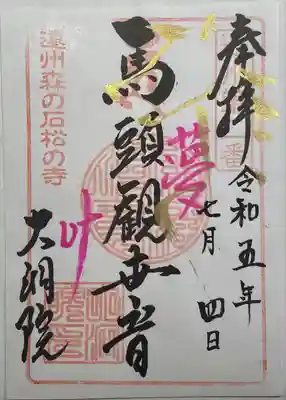 奉拝
令和五年
七月四日
馬頭観世音
夢
叶
遠州森の石松の寺
大洞院